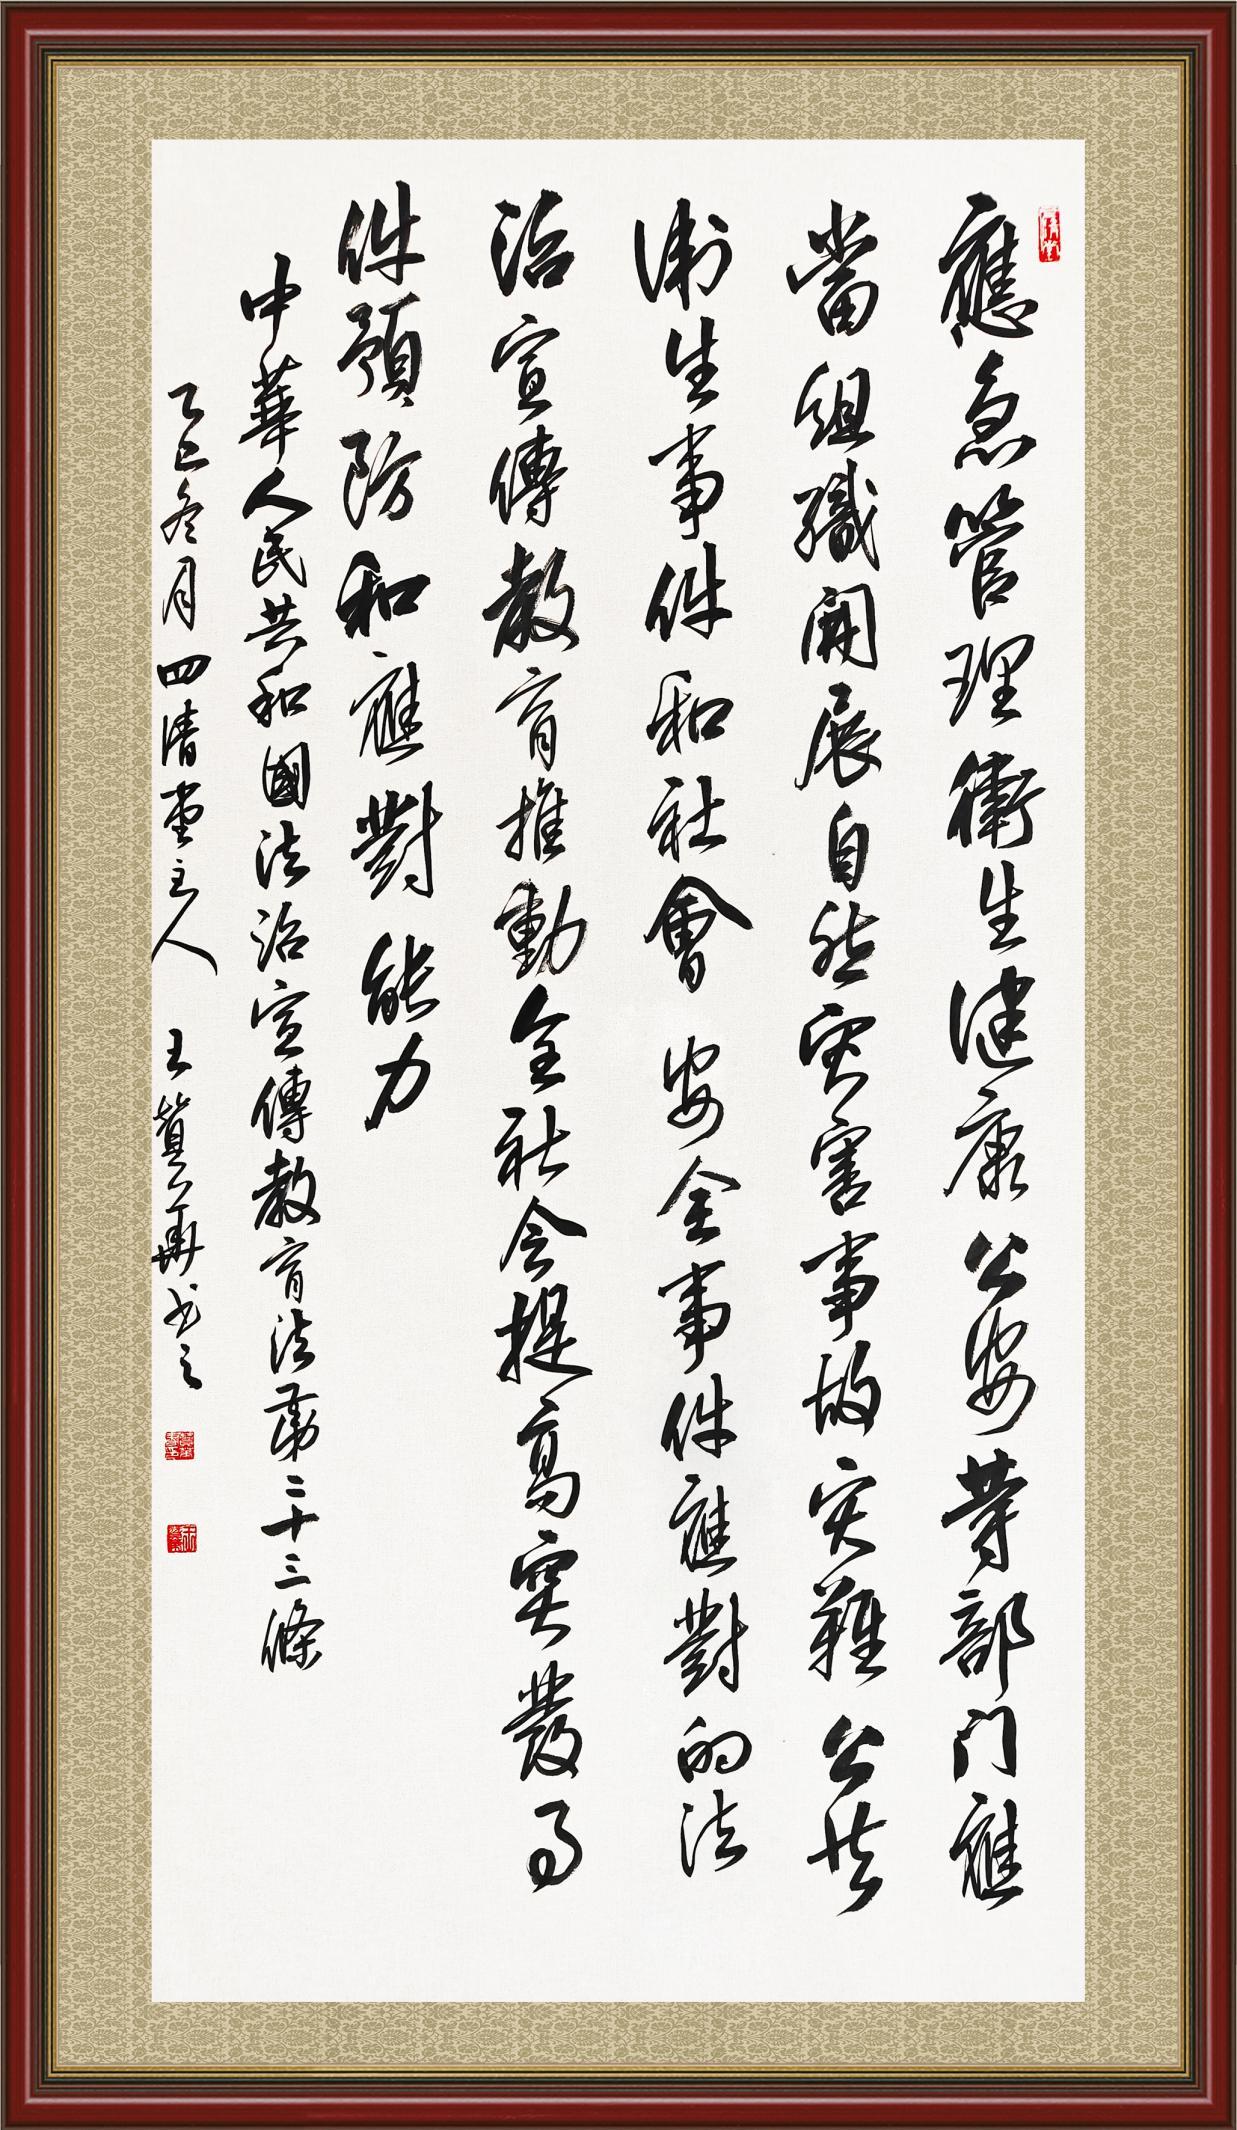 應急管理衛生健康公安等部门應
當組織開展自然災害事故災難公共
衛生事件和社會安全事件應對的法
治宣傳教育推動全社会提高突發事
件預防和應對能力
中華人民共和國法治宣傳教育法第二十三條
乙巳冬月四清堂主人 王贊華书之